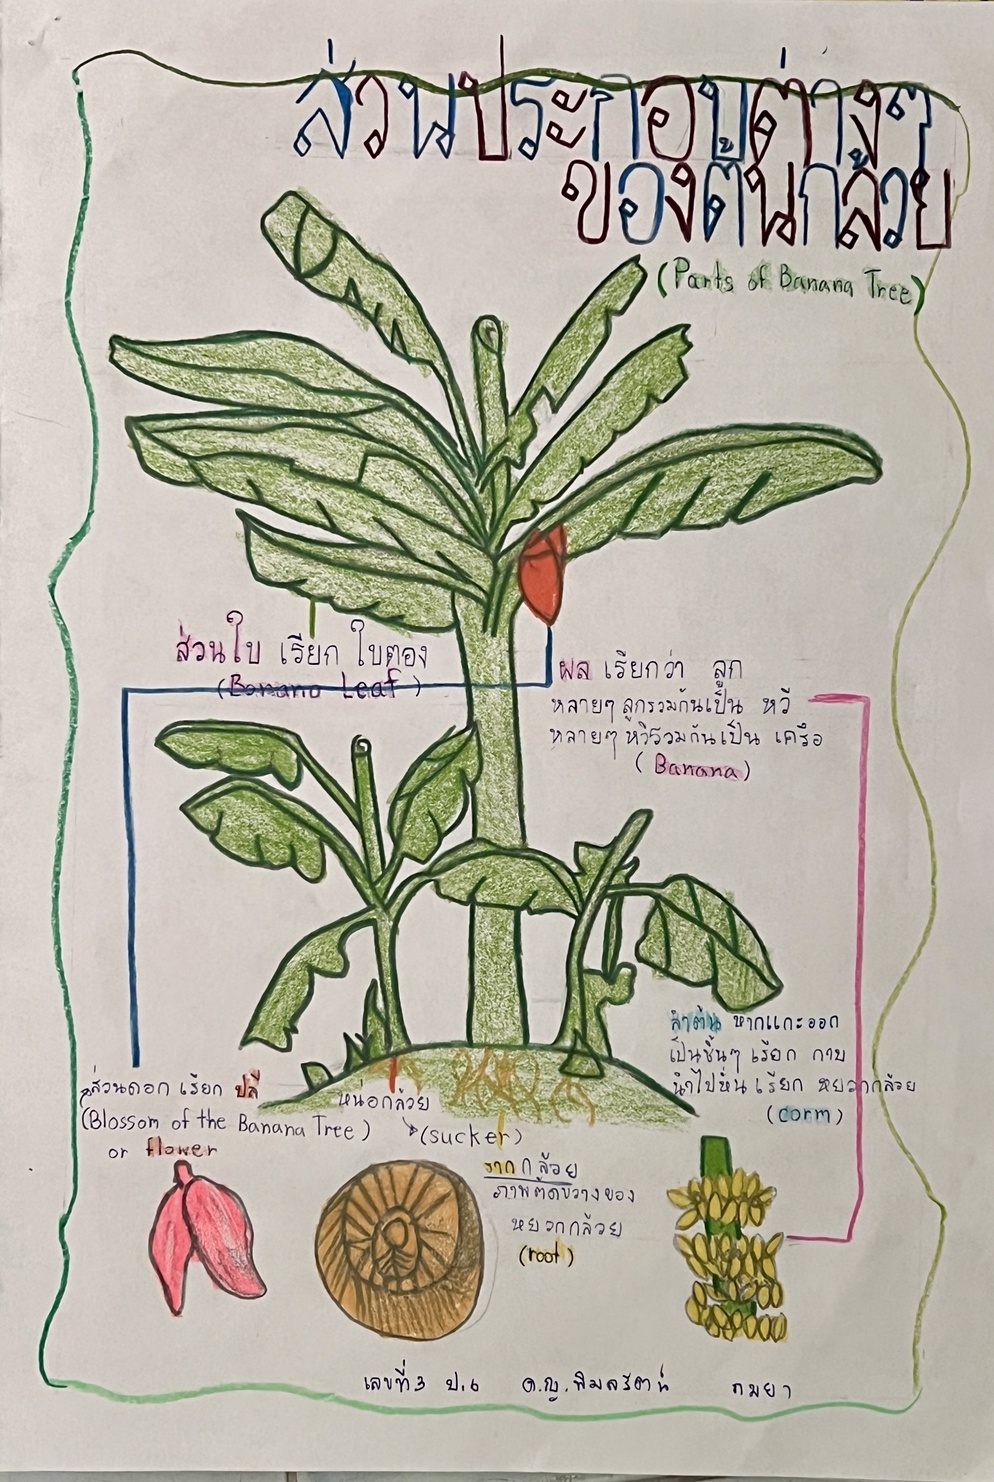 ส่วนประกอบต่างๆ
ของต้นกล้วย
(Parts of Banana Tree)
ส่วนใบ เรียก ใบตอง
(Banana Leaf)
ผล เรียกว่า ลูก
หลายๆ ลูกรวมกันเป็น หวี
หลายๆ หวีรวมกันเป็น เครือ
(Banana)
ลำต้น หากแกะออก
เป็นชั้นๆ เรียก กาบ
นำไปหั่น เรียก หยวกกล้วย
(corm)
ส่วนดอก เรียก ปลี
(Blossom of the Banana Tree)
or flower
หน่อกล้วย
(sucker)
รากกล้วย
ภาพตัดขวางของ
หยวกกล้วย
(root)
เลขที่3 ป.6 ด.ญ.พิมลรัตน์